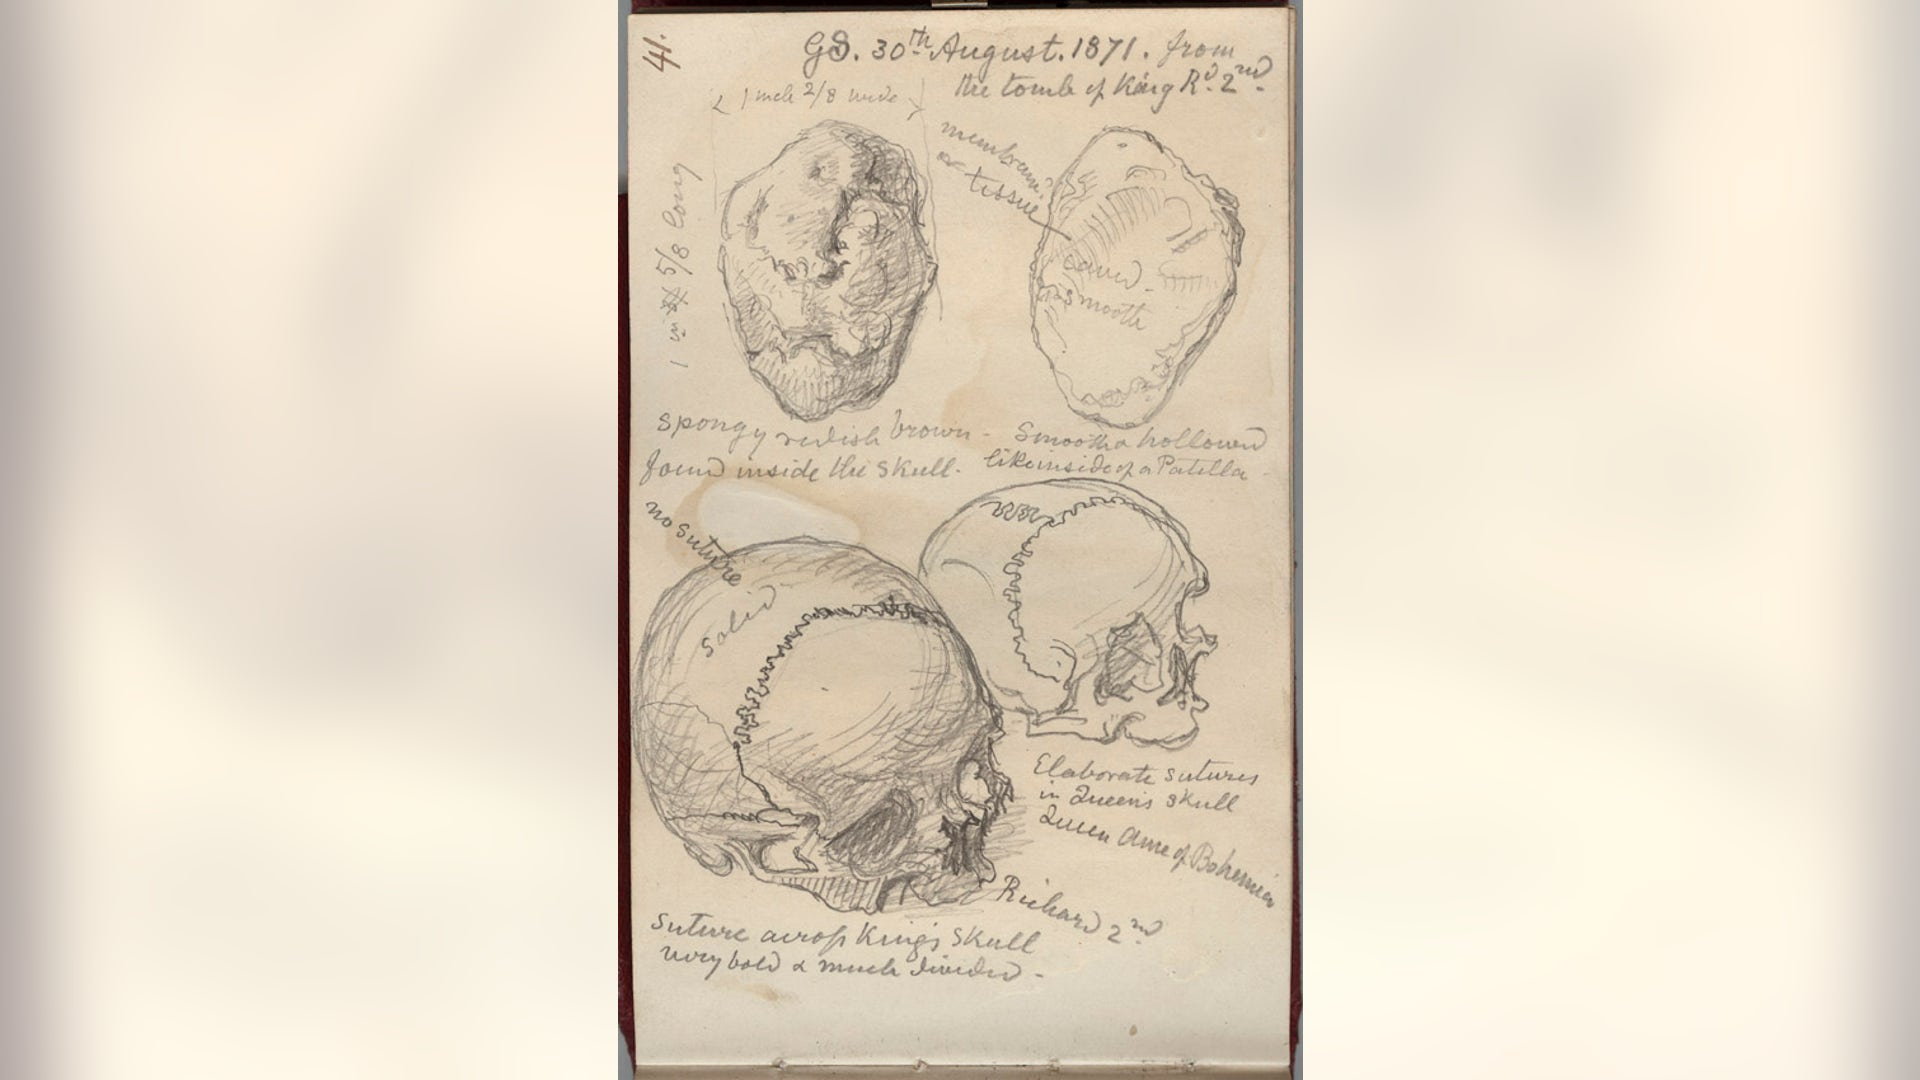 41.
GS. 30th August. 1871. from
the tomb of King Rd. 2nd.
1 inch 2/8 wide
1 in 5/8 long
membrane?
or tissue
smooth
spongy redish brown -
found inside the skull.
Smooth & hollowed
like inside of a Patella -
no suture
solid
Elaborate sutures
in Queen's skull
Queen Anne of Bohemia
Richard 2nd
suture across King's skull
very bold & much divided -